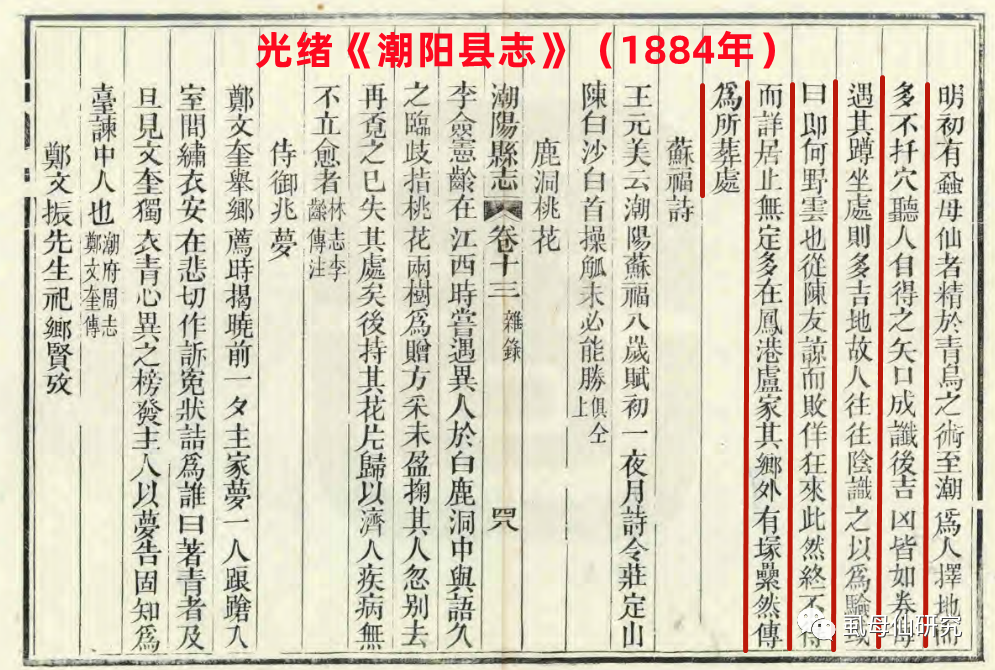 光绪《潮阳县志》（1884年）
明初有蝨母仙者精於青烏之術至潮爲人擇地
多不扦穴聽人自得之矢口成讖後吉凶皆如券
遇其蹲坐處則多吉地故人往往陰識之以爲驗或
曰即何野雲也從陳友諒而敗佯狂來此然終不得
而詳居止無定多在鳳港盧家其鄉外有塚纍然傳
爲所葬處
蘇福詩
王元美云潮陽蘇福八歲賦初一夜月詩令莊定山
陳白沙白首操觚未必能勝俱仝上
鹿洞桃花
潮陽縣志 卷十三 雜錄 四八
李㚑憲齡在江西時嘗遇異人於白鹿洞中與語久
之臨歧指桃花兩樹爲贈方采未盈掬其人忽别去
再覔之已失其處矣後持其花片歸以濟人疾病無
不立愈者林志李齡傳注
侍御兆夢
鄭文奎舉鄉薦時揭曉前一夕主家夢一人踉蹌入
室間繡衣安在悲切作訴冤狀詰爲誰曰著青者及
旦見文奎獨衣青心異之榜發主人以夢告固知爲
臺諫中人也潮府周志鄭文奎傳
鄭文振先生祀鄉賢攷
虱母仙研究